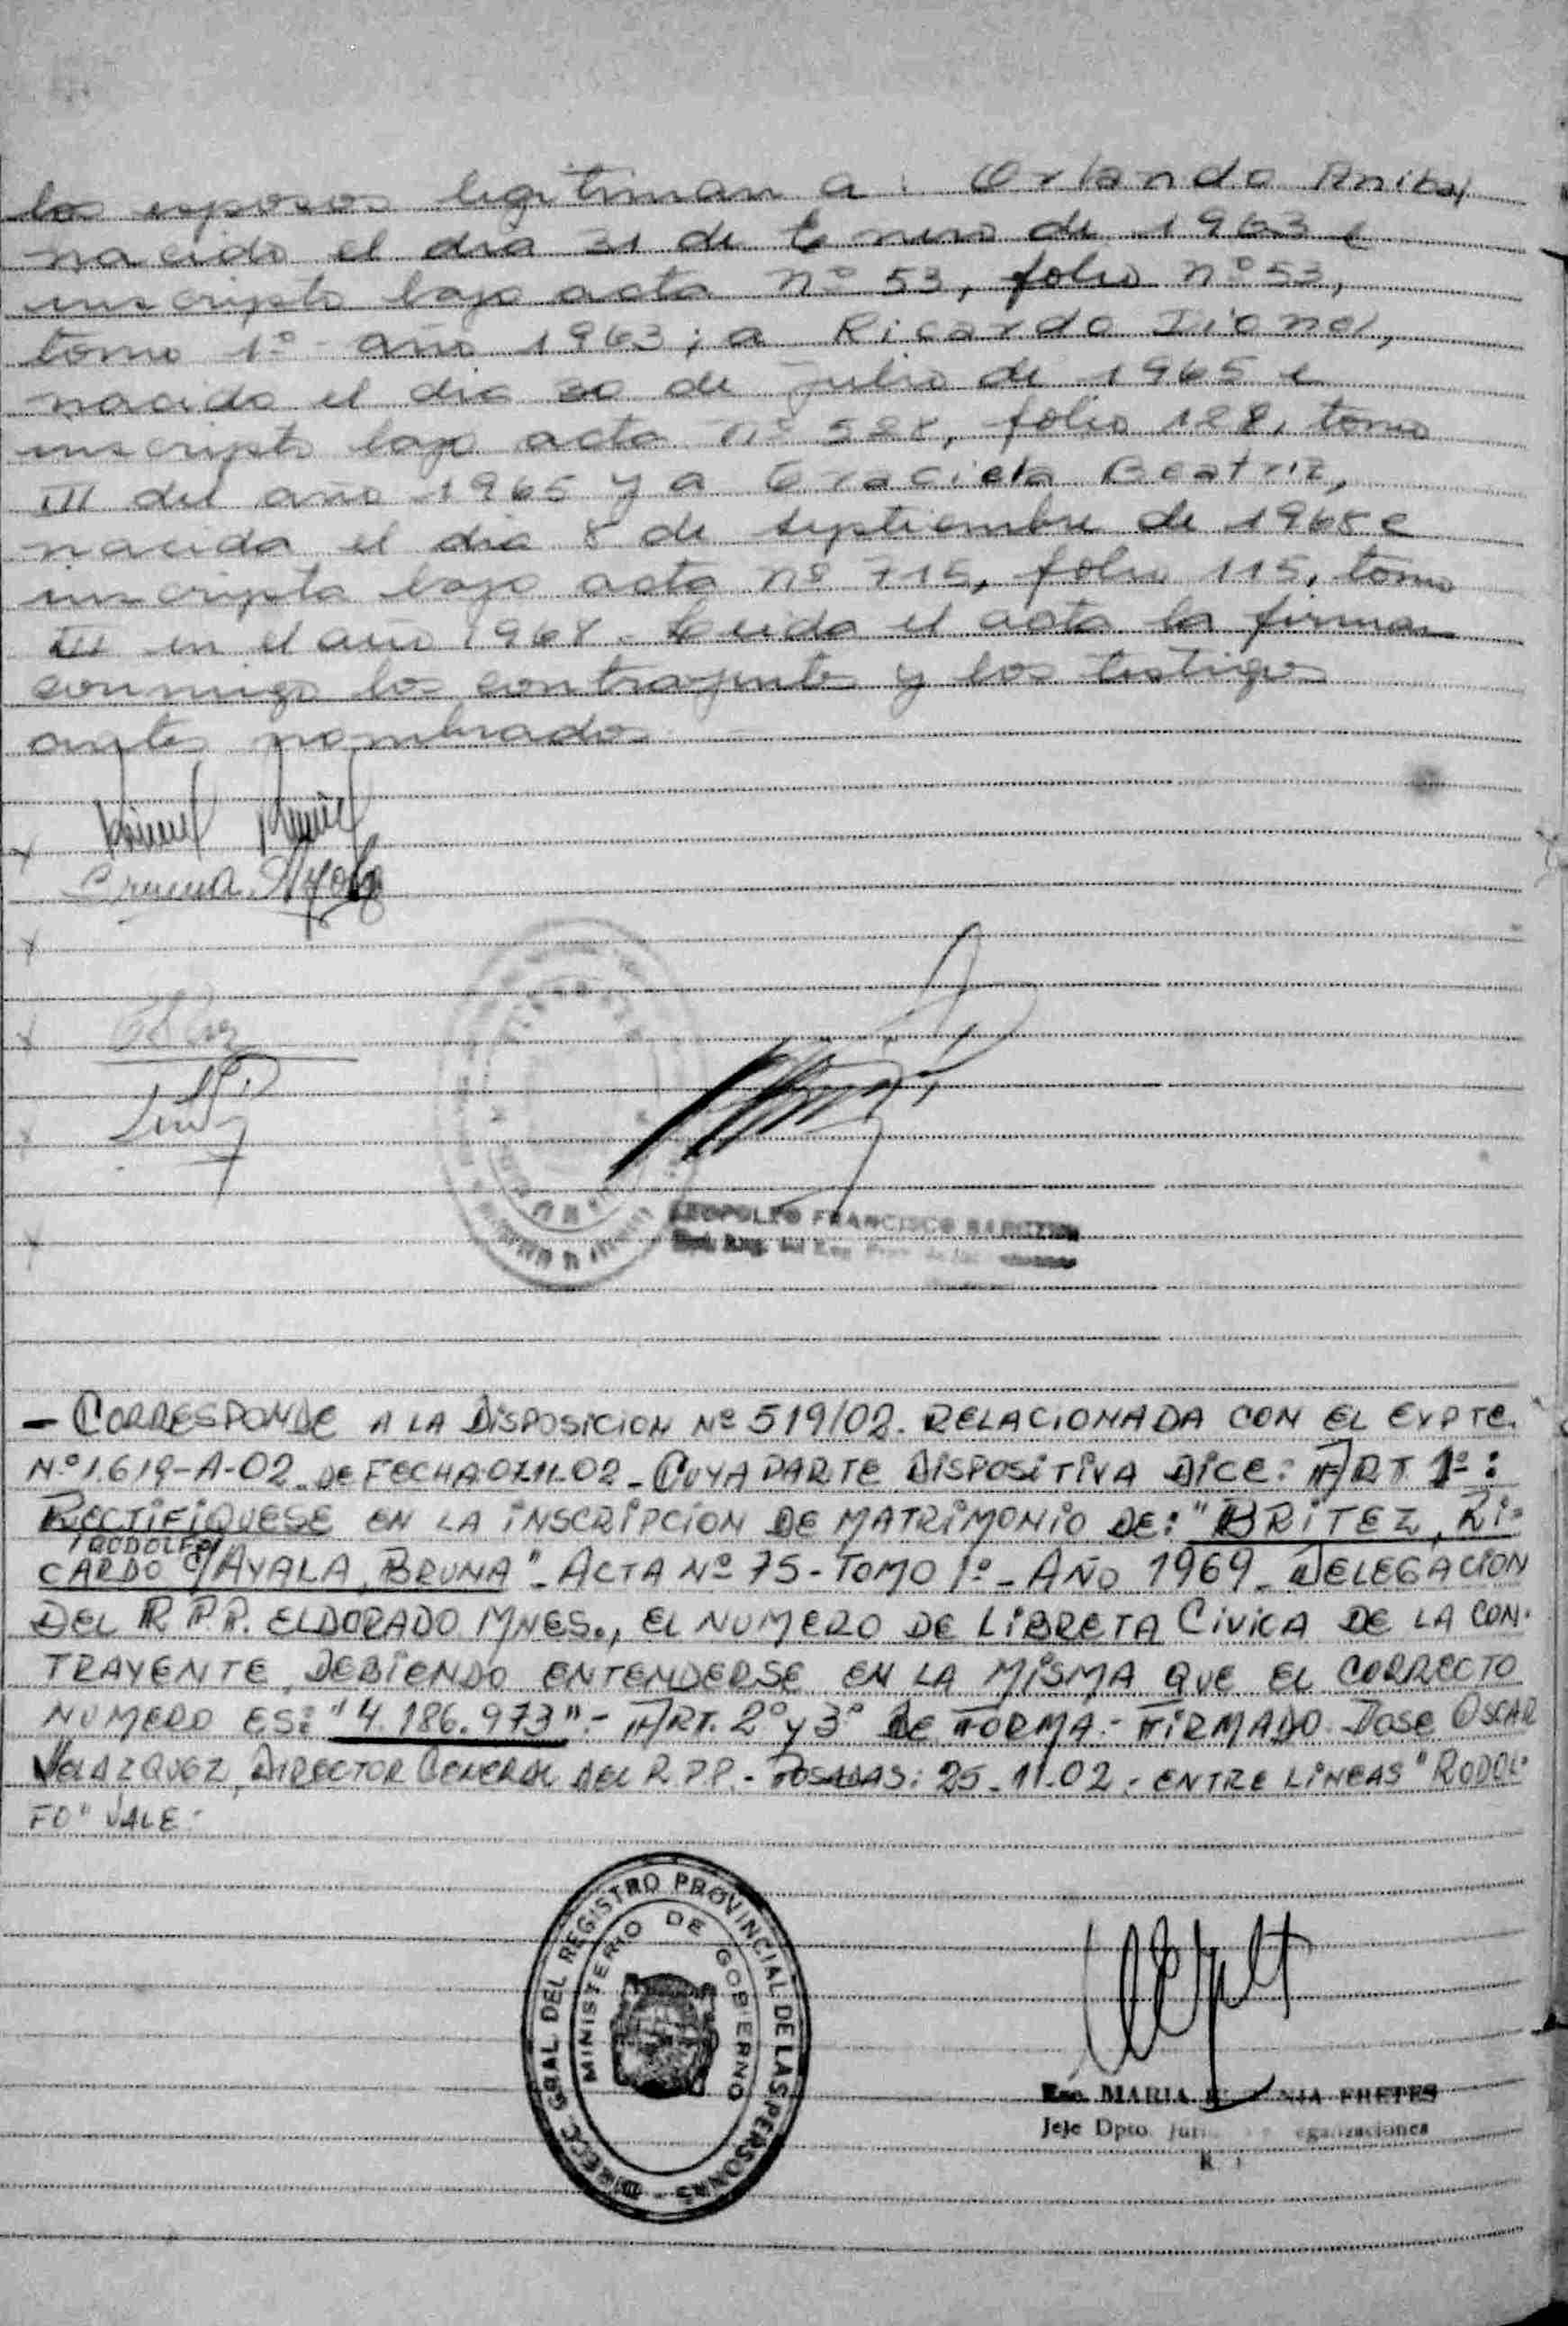 los esposos legitiman a: Orlando Anibal
nacido el dia 31 de Enero de 1963 e
inscripto bajo acta nº 53, folio nº 53,
tomo 1º año 1963; a Ricardo Dionel,
nacido el dia 30 de julio de 1965 e
inscripto bajo acta nº 528, folio 128, tomo
III del año 1965 y a Graciela Beatriz,
nacida el dia 8 de septiembre de 1968 e
inscripta bajo acta nº 715, folio 115, tomo
III en el año 1968. Leida el acta la firman
conmigo los contrayentes y los testigos
antes nombrados
LEOPOLDO FRANCISCO
- CORRESPONDE A LA DISPOSICION Nº 519/02. RELACIONADA CON EL EXPTE.
Nº 1.619-A-02 DE FECHA 07.11.02 - CUYA PARTE DISPOSITIVA DICE: ART 1º:
RECTIFIQUESE EN LA INSCRIPCION DE MATRIMONIO DE: "BRITEZ, RI-
/RODOLFO/
CARDO C/AYALA, BRUNA" - ACTA Nº 75 - TOMO 1º - AÑO 1969 - DELEGACION
DEL R.P.P. ELDORADO MNES., EL NUMERO DE LIBRETA CIVICA DE LA CON-
TRAYENTE, DEBIENDO ENTENDERSE EN LA MISMA QUE EL CORRECTO
NUMERO ES: "4.186.973".- ART. 2º y 3º DE FORMA.- FIRMADO JOSE OSCAR
VELAZQUEZ, DIRECTOR GENERAL DEL R.P.P. - POSADAS: 25-11-02.- ENTRE LINEAS "RODOL-
FO" VALE.-
DIRECC. GRAL. DEL REGISTRO PROVINCIAL DE LAS PERSONAS -
MINISTERIO DE GOBIERNO
Esc. MARIA FRETES
Jefe Dpto.